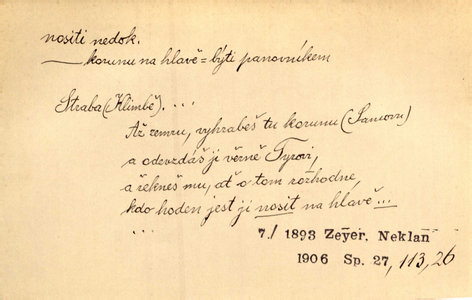 nositi nedok.
—— korunu na hlavě = býti panovníkem
Straba (Klimbě) . . .
Až zemru, vyhrabeš tu korunu (Samovu)
a odevzdáš ji věrně Tyrovi,
a řekneš mu, ať o tom rozhodne,
kdo hoden jest ji nosit na hlavě ...
...
7./ 1893 Zeyer, Neklan
1906 Sp. 27, 113, 26